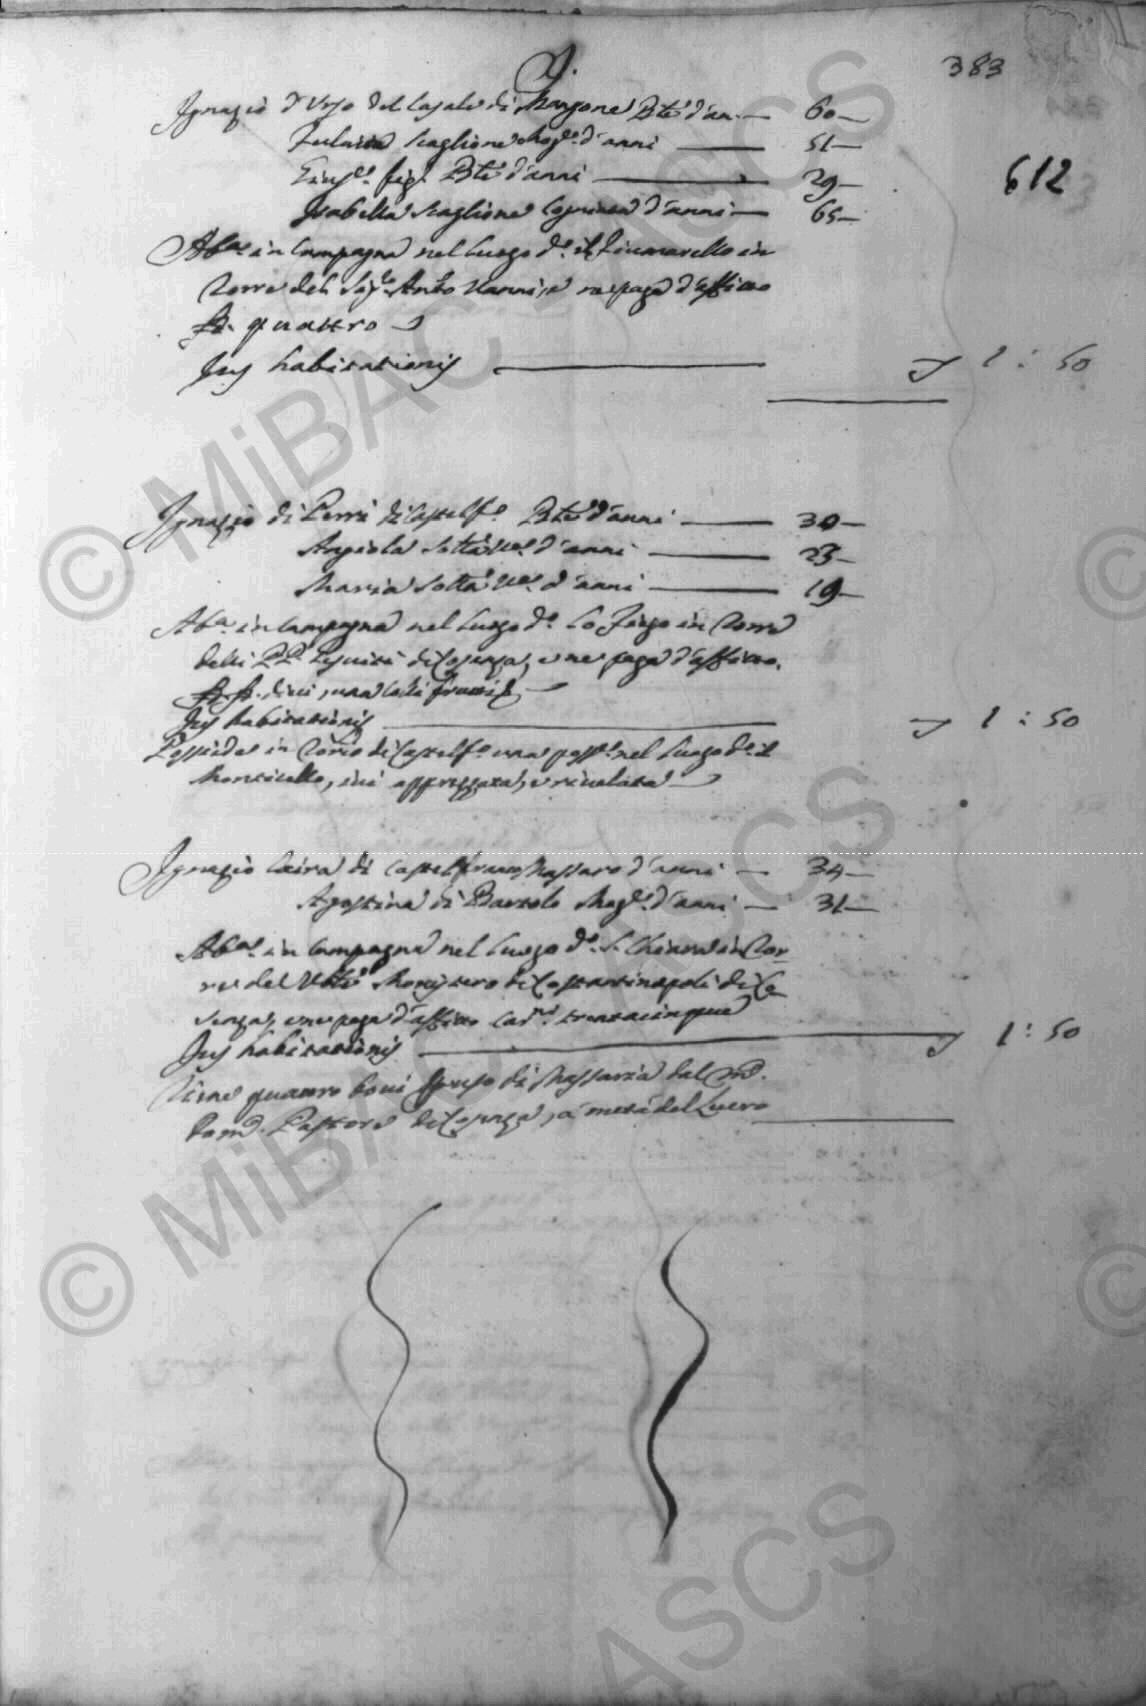 J.
383
612
Ignazio d'Urso del Casale di Marzone Bte d'an. — 60 —
Scaglione Mog.e d'anni — 51 —
fig.o Bte d'anni — 29 —
Isabella Scaglione Cognata d'anni — 65 —
Ab.a in Campagna nel Luogo d.o il Fiumarello in
Torre del Sig.r Ant.o Nanni, e ne paga d'affitto
quattro
Jus habitationis — 1 : 50
Ignazio di Perri di Castelf.o Bte d'anni — 30 —
Angiola d'anni — 23 —
Maria d'anni — 19 —
Ab.a in Campagna nel Luogo d.o Lo in Torre
delli PP. Gesuiti di Cosenza, e ne paga d'affitto
dieci,
Jus habitationis — 1 : 50
Possiede in di Castelf.o una poss.e nel Luogo d.o il
Monticello, ivi apprezzata, e rivelata
Ignazio Caira di Castelfranco Massaro d'anni — 34 —
Agostina di Bartolo Mog.e d'anni — 31 —
Ab.a in Campagna nel Luogo d.o S. Chiara in Tor-
re del Monistero di Costantinopoli di Co-
senza, e ne paga d'affitto Car.ni trentacinque
Jus habitationis — 1 : 50
Tiene quattro bovi uso di Massaria dal
Pastore di Cosenza, a metà del Lucro
© MiBAC - ASCS
© MiBAC - ASCS
ASCS
©
©